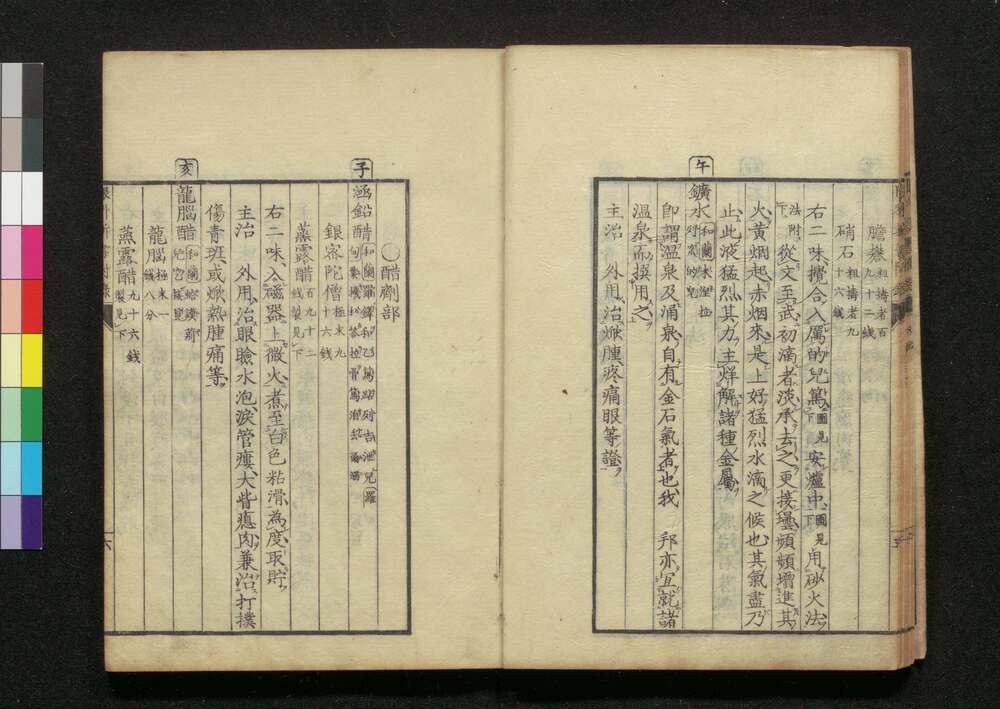 膽礬 粗擣者百九十二錢
硝石 粗擣者九十六錢
右二味、攪合、入厲的兒篤、圖見下安爐中、圖見下用砂火法、
法附下從文至武、初滴者淡、承去之、更接壜、頻頻增進其
火、黃烟起、赤烟來、是上好猛烈水滴之候也、其氣盡乃
止、此液猛烈、其力主烊解諸種金屬、
午
鑛水
即謂溫泉及涌泉、自有金石氣者也、我 邦亦宜就諸
溫泉而撰用之、
主治 外用、治焮腫疼痛眼等證、
○醋劑部
子
涵鉛醋
銀密陀僧 極末九十六錢
蒸露醋 百九十二錢製見下
右二味、入磁器、上微火、煮至白色粘滑為度、取貯、
主治 外用、治眼瞼水泡、淚管瘻、大眥瘜肉、兼治打撲
傷青斑、或焮熱腫痛等、
亥
龍腦醋
龍腦 極末一錢八分
蒸露醋 九十六錢製見下
六